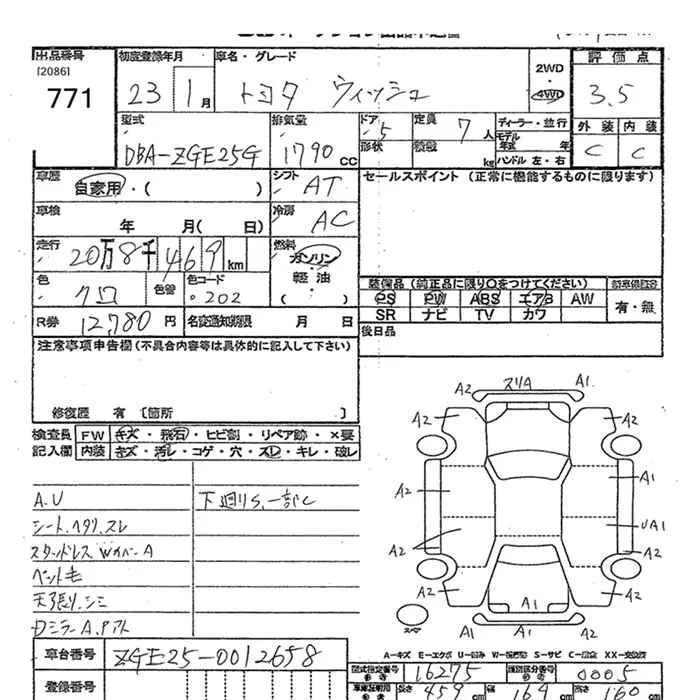 出品番号 初度登録年月 車名・グレード 評価点
[2086]
771 23 1月 トヨタ ウィッシュ 2WD・4WD 3.5
型式 排気量 ドア 5 定員 7人 ディーラー・並行 外装 内装
DBA-ZGE25G 1790cc 形状 積載 kg モデル年式 年 ハンドル 左・右 C C
車歴 自家用・( ) シフト AT セールスポイント (正常に機能するものに限ります)
車検 年 月( 日) 冷房 AC
走行 20万8千469km 燃料 ガソリン・軽油・( )
色 クロ 色替 色コード 202 装備品 (純正品に限り○をつけてください)
PS PW ABS エアB AW 有・無
SR ナビ TV カワ
R券 12,780円 名変通知期限 月 日 後日品
注意事項申告欄(不具合内容等は具体的に記入して下さい)
修復歴 有 [箇所 ]
検査員 FW キズ・飛石・ヒビ割・リペア跡・×要
記入欄 内装 キズ・汚レ・コゲ・穴・スレ・キレ・破レ
A.U 下廻りS.一部C
シート.ヘタリ.スレ
スタッドレス Wカバー.A
ペット毛
天張り.シミ
Dミラー A.
A2 スリA A1
A2 A2
A2 A1
A2 UA1
A2 A2
A2 A1 A2
スペア A1 A1
A-キズ E-エクボ U-凹み W-補修跡 S-サビ C-腐食 XX-交換済
車台番号 ZGE25-0012658 型式指定番号 16275 類別区分番号 0005
登録番号 長さ 459cm 幅 169cm 高さ 160cm